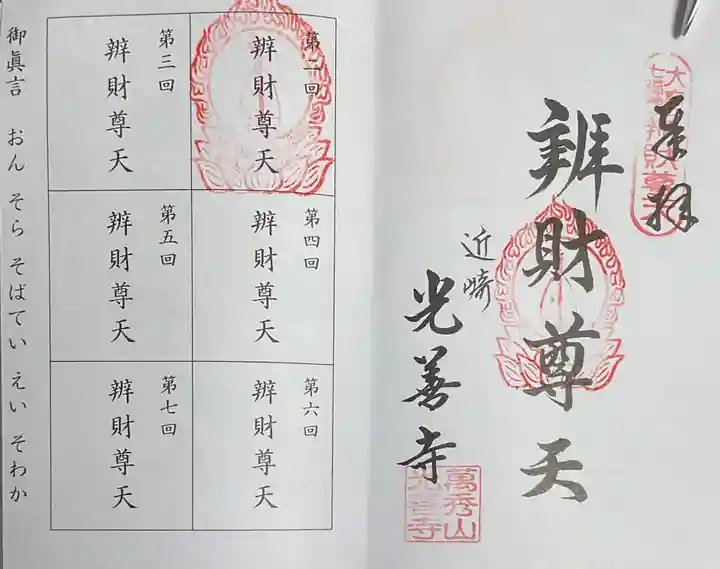 奉拝
辨財尊天
近崎
光善寺
萬秀山
光善寺
第二回
辨財尊天
第三回
辨財尊天
第四回
辨財尊天
第五回
辨財尊天
第六回
辨財尊天
第七回
辨財尊天
御眞言 おん そら そばてい えい そわか